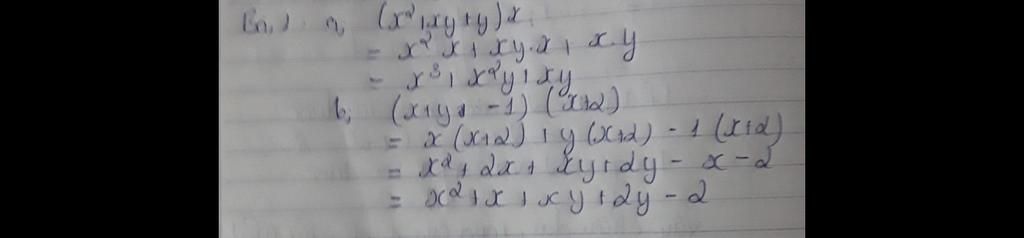 Bài 1 a, (x²+xy+y)x
= x².x + xy.x + x.y
= x³ + x²y + xy
b, (x+y+ -1) (x+2)
= x(x+2) + y(x+2) - 1(x+2)
= x² + 2x + xy + 2y - x - 2
= x² + x + xy + 2y - 2